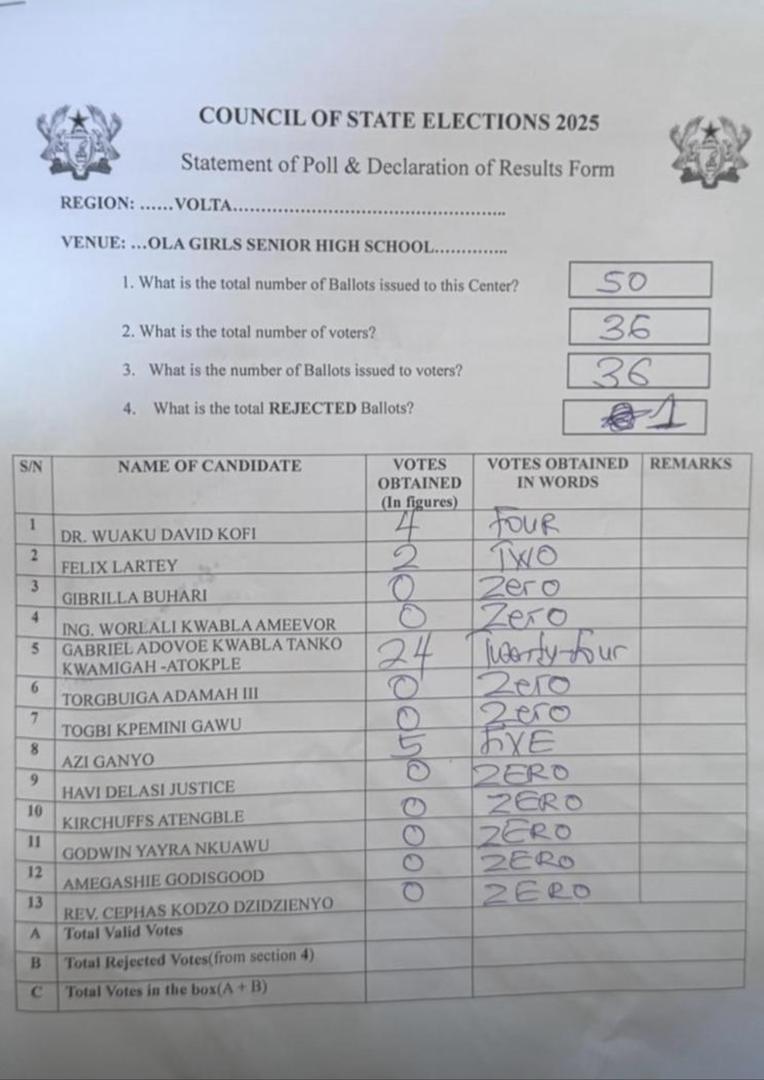 COUNCIL OF STATE ELECTIONS 2025
Statement of Poll & Declaration of Results Form
REGION: ......VOLTA..................................................
VENUE: ...OLA GIRLS SENIOR HIGH SCHOOL..............
1. What is the total number of Ballots issued to this Center? 50
2. What is the total number of voters? 36
3. What is the number of Ballots issued to voters? 36
4. What is the total REJECTED Ballots? 1
S/N NAME OF CANDIDATE VOTES OBTAINED (In figures) VOTES OBTAINED IN WORDS REMARKS
1 DR. WUAKU DAVID KOFI 4 FOUR
2 FELIX LARTEY 2 TWO
3 GIBRILLA BUHARI 0 Zero
4 ING. WORLALI KWABLA AMEEVOR 0 Zero
5 GABRIEL ADOVOE KWABLA TANKO KWAMIGAH -ATOKPLE 24 Twenty-four
6 TORGBUIGA ADAMAH III 0 Zero
7 TOGBI KPEMINI GAWU 0 Zero
8 AZI GANYO 5 FIVE
9 HAVI DELASI JUSTICE 0 ZERO
10 KIRCHUFFS ATENGBLE 0 ZERO
11 GODWIN YAYRA NKUAWU 0 ZERO
12 AMEGASHIE GODISGOOD 0 ZERO
13 REV. CEPHAS KODZO DZIDZIENYO 0 ZERO
A Total Valid Votes
B Total Rejected Votes(from section 4)
C Total Votes in the box(A + B)